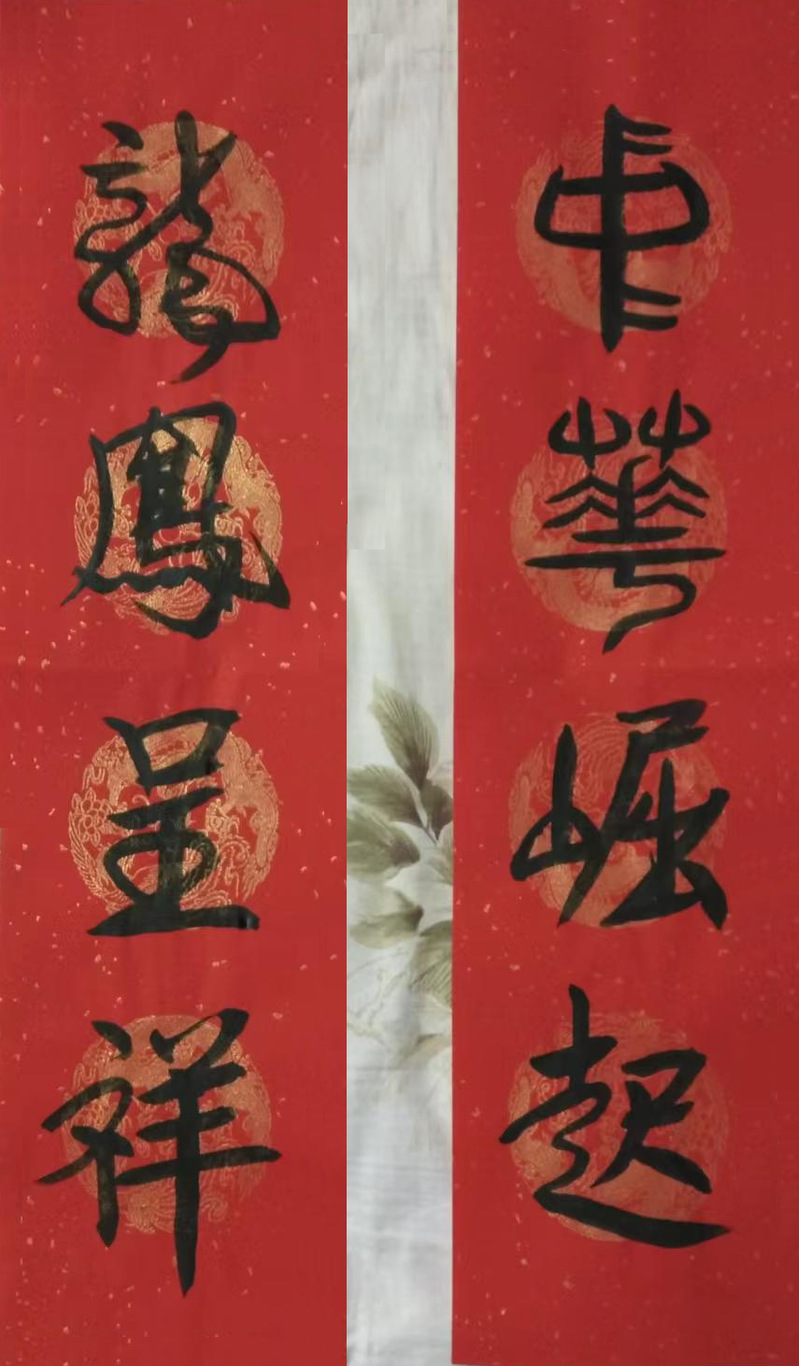 中華崛起
龍鳳呈祥